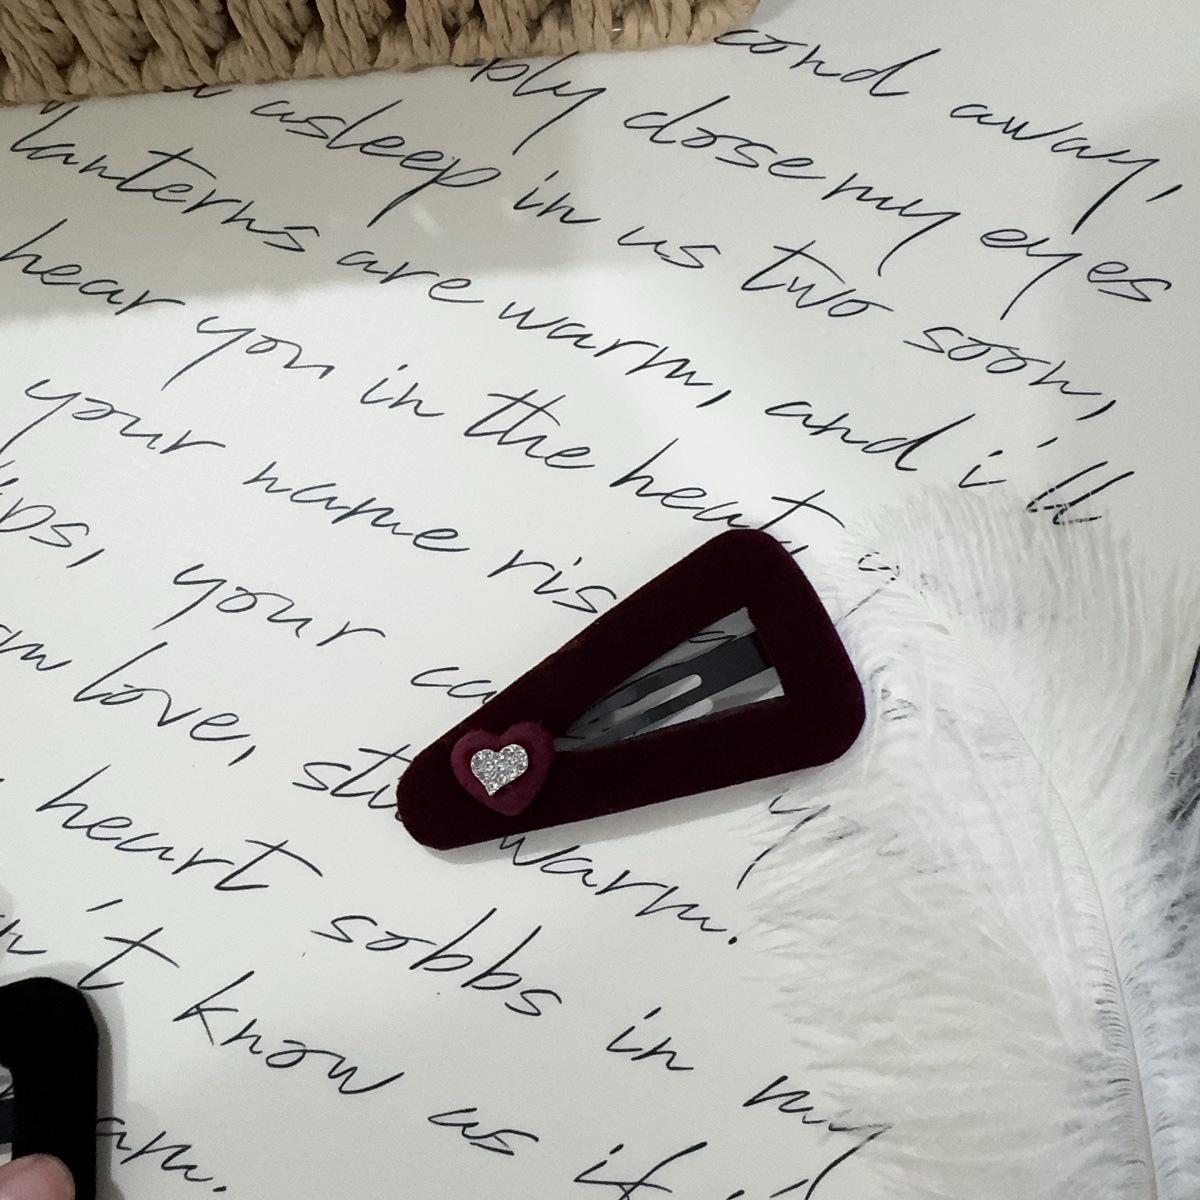 cond away,
ply close my eyes
asleep in us two soon,
lanterns are warm, and i'll
hear you in the heat,
your name ris
ips, your
love, warm.
heart sobbs in my
n't know us if
am.